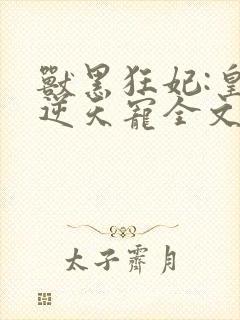 獸黑狂妃:皇
逆天寵全文
太子霽月